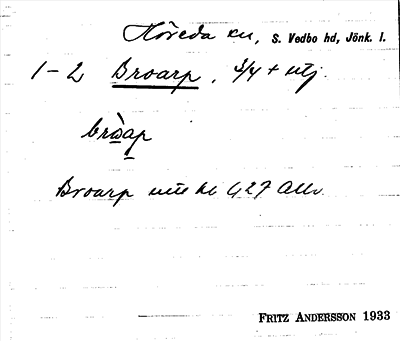 Höreda sn, S. Vedbo hd, Jönk. l.
1-2 Broarp, 3/4 + utj.
bròap
Broarp 427
FRITZ ANDERSSON 1933